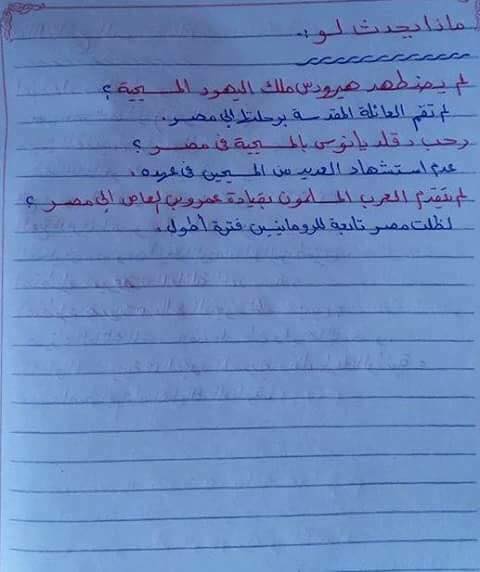 ماذا يحدث لو :.
لم يضطهد هيرودس ملك اليهود المسيحية ؟
لم تقم العائلة المقدسة برحلتها إلى مصر .
رحب دقلديانوس بالمسيحية فى مصر ؟
عدم استشهاد العديد من المسيحين فى عهده .
لم يتقدم العرب المسلمون بقيادة عمرو بن العاص إلى مصر ؟
لظلت مصر تابعة للرومانيين فترة أطول .